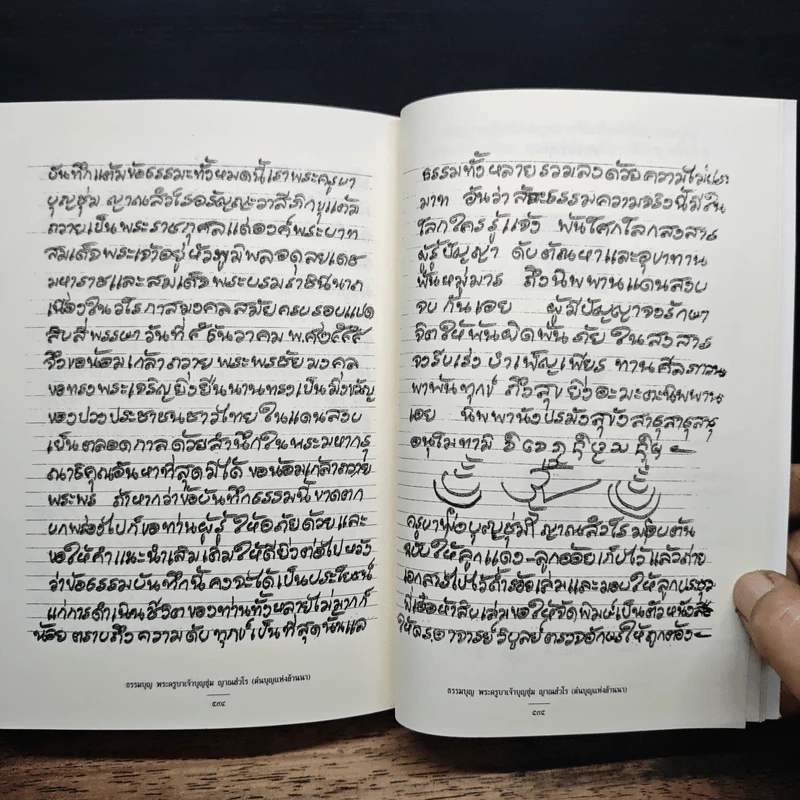 บันทึกแต้มข้อธรรมะทั้งหมดนี้เราพระครูบา
บุญชุ่ม ญาณสํวโรอรัญญะวาสีภิกขุแต้ม
ถวายเป็นพระราชกุศลแด่องค์พระบาท
สมเด็จพระเจ้าอยู่หัวภูมิพลอดุลยเดช
มหาราชและสมเด็จพระบรมราชินีนาถ
เนื่องในวโรกาสมงคลสมัยครบรอบแปด
สิบสี่พรรษาวันที่ ๕ ธันวาคม พ.ศ.๒๕๕๕
จึงขอน้อมเกล้าถวายพระพรชัยมงคล
ขอทรงพระเจริญยิ่งยืนนานทรงเป็นมิ่งขวัญ
ของปวงประชาชนชาวไทยในแดนสงบ
เย็นตลอดกาลด้วยสำนึกในพระมหากรุ
ณาธิคุณอันหาที่สุดมิได้ ขอน้อมเกล้าถวาย
พระพร ถ้าหากว่าข้อบันทึกธรรมนี้ขาดตก
บกพร่องไปก็ขอท่านผู้รู้ให้อภัยด้วยและ
ขอให้คำแนะนำเสิมเติมให้ดียิ่งต่อไปหวัง
ว่าข้อธรรมบันทึกนี้คงจะได้เป็นประโยชน์
แก่การดำเนินชีวิตของท่านทั้งหลายไม่มากก็
น้อย ตราบถึงความดับทุกข์เป็นที่สุดนั้นแล
ธรรมบุญ พระครูบาเจ้าบุญชุ่ม ญาณสํวโร (ต๋นบุญแห่งล้านนา)
๕๓๔
ธรรมทั้งหลายรวมลงด้วยความไม่ประ
มาท อันว่าสัจะธรรมความจริงนี้มีใน
โลกใครรู้แจ้ง พ้นโศกโลกสงสาร
ผู้รู้ปัญญา ดับตัณหาและอุปาทาน
พ้นหมู่มาร ถึงนิพพานแดนสงบ
จบกันเอย ผู้มีปัญญาจงรักษา
จิตให้พ้นผิดพ้นภัยในสงสาร
จงรีบเร่งบำเพ็ญเพียรทานศีลภาวนา
พาพ้นทุกข์ ถึงสุขยิ่งอะมะตะนิพพาน
เอย นิพพานังปรมังสุขังสาธุสาธุสาธุ
อนุโมทามิ
ครูบาพ่อบุญชุ่ม ญาณสํวโร มอบต้น
ฉบับให้ลูกแดง-ลูกอ้อยเก็บไว้แล้วถ่าย
เอกสารไปไว้ถ้ำร้อยเล่มและมอบให้ลูก
พี่เอื้อห้าสิบเล่มขอให้จัดพิมพ์เป็นตัวหนังสือ
ให้ดร.อาจารย์วิบูลย์ตรวจอักษรให้ถูกต้อง
ธรรมบุญ พระครูบาเจ้าบุญชุ่ม ญาณสํวโร (ต๋นบุญแห่งล้านนา)
๕๓๕